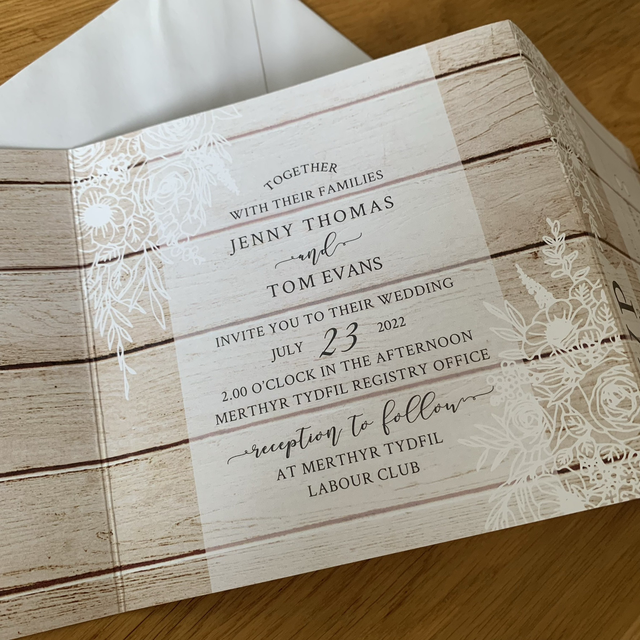 TOGETHER
WITH THEIR FAMILIES
JENNY THOMAS
and
TOM EVANS
INVITE YOU TO THEIR WEDDING
JULY 23 2022
2.00 O'CLOCK IN THE AFTERNOON
MERTHYR TYDFIL REGISTRY OFFICE
reception to follow
AT MERTHYR TYDFIL
LABOUR CLUB